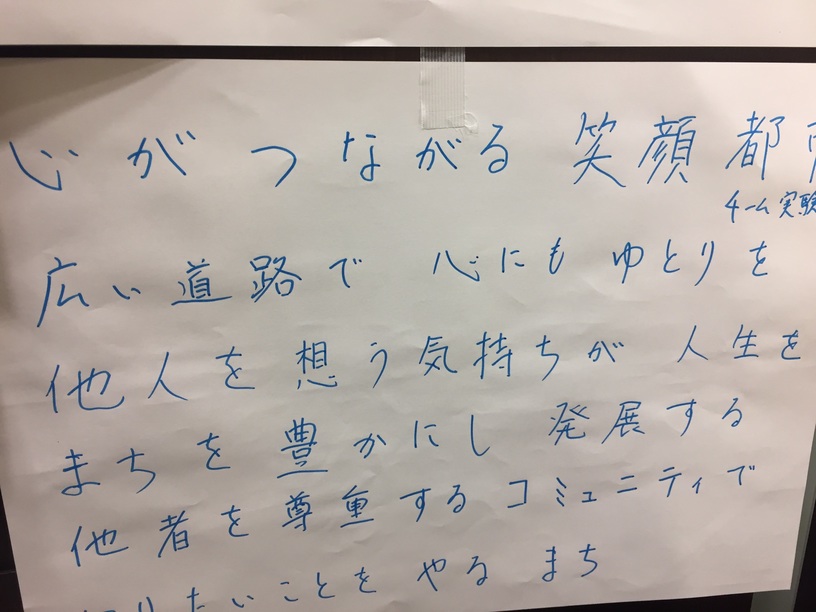 心がつながる 笑顔都
チーム実験
広い道路で 心にも ゆとりを
他人を想う気持ちが 人生を
まちを豊かにし 発展する
他者を尊重するコミュニティで
りたいことを やる まち